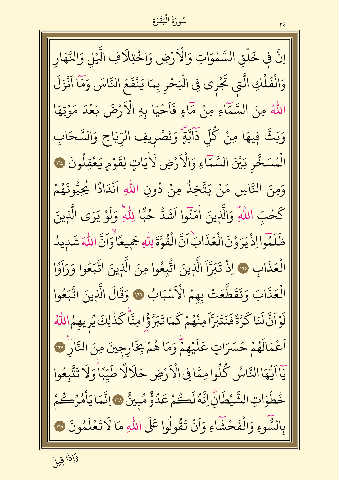 سُورَةُ الْبَقَرَةِ
إِنَّ فِي خَلْقِ السَّمٰوَاتِ وَالْاَرْضِ وَاخْتِلَافِ الَّيْلِ وَالنَّهَارِ
وَالْفُلْكِ الَّتِي تَجْرِي فِي الْبَحْرِ بِمَا يَنْفَعُ النَّاسَ وَمَٓا اَنْزَلَ
اللّٰهُ مِنَ السَّمَٓاءِ مِنْ مَٓاءٍ فَاَحْيَا بِهِ الْاَرْضَ بَعْدَ مَوْتِهَا
وَبَثَّ فِيهَا مِنْ كُلِّ دَٓابَّةٍ وَتَصْرِيفِ الرِّيَاحِ وَالسَّحَابِ
الْمُسَخَّرِ بَيْنَ السَّمَٓاءِ وَالْاَرْضِ لَاٰيَاتٍ لِقَوْمٍ يَعْقِلُونَ ﴿١٦٤﴾
وَمِنَ النَّاسِ مَنْ يَتَّخِذُ مِنْ دُونِ اللّٰهِ اَنْدَادًا يُحِبُّونَهُمْ
كَحُبِّ اللّٰهِ وَالَّذِينَ اٰمَنُٓوا اَشَدُّ حُبًّا لِلّٰهِ وَلَوْ يَرَى الَّذِينَ
ظَلَمُٓوا اِذْ يَرَوْنَ الْعَذَابَ اَنَّ الْقُوَّةَ لِلّٰهِ جَمِيعًا وَاَنَّ اللّٰهَ شَدِيدُ
الْعَذَابِ ﴿١٦٥﴾ اِذْ تَبَرَّاَ الَّذِينَ اتُّبِعُوا مِنَ الَّذِينَ اتَّبَعُوا وَرَاَوُا
الْعَذَابَ وَتَقَطَّعَتْ بِهِمُ الْاَسْبَابُ ﴿١٦٦﴾ وَقَالَ الَّذِينَ اتَّبَعُوا
لَوْ اَنَّ لَنَا كَرَّةً فَنَتَبَرَّاَ مِنْهُمْ كَمَا تَبَرَّؤُ۫ا مِنَّا كَذٰلِكَ يُرِيهِمُ اللّٰهُ
اَعْمَالَهُمْ حَسَرَاتٍ عَلَيْهِمْ وَمَا هُمْ بِخَارِجِينَ مِنَ النَّارِ ﴿١٦٧﴾
يَٓا اَيُّهَا النَّاسُ كُلُوا مِمَّا فِي الْاَرْضِ حَلَالًا طَيِّبًا وَلَا تَتَّبِعُوا
خُطُوَاتِ الشَّيْطَانِ اِنَّهُ لَكُمْ عَدُوٌّ مُبِينٌ ﴿١٦٨﴾ اِنَّمَا يَأْمُرُكُمْ
بِالسُّٓوءِ وَالْفَحْشَٓاءِ وَاَنْ تَقُولُوا عَلَى اللّٰهِ مَا لَا تَعْلَمُونَ ﴿١٦٩﴾